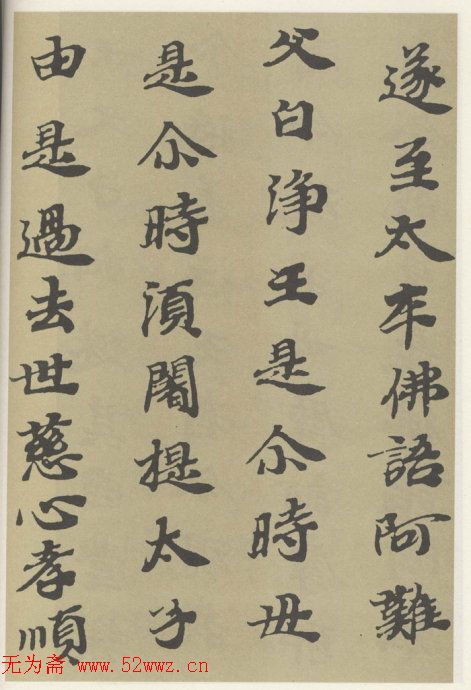 遂至太平佛語阿難
父白淨王是尒時毋
是尒時須闍提太子
由是過去世慈心孝順
无为斋 www.52wwz.cn